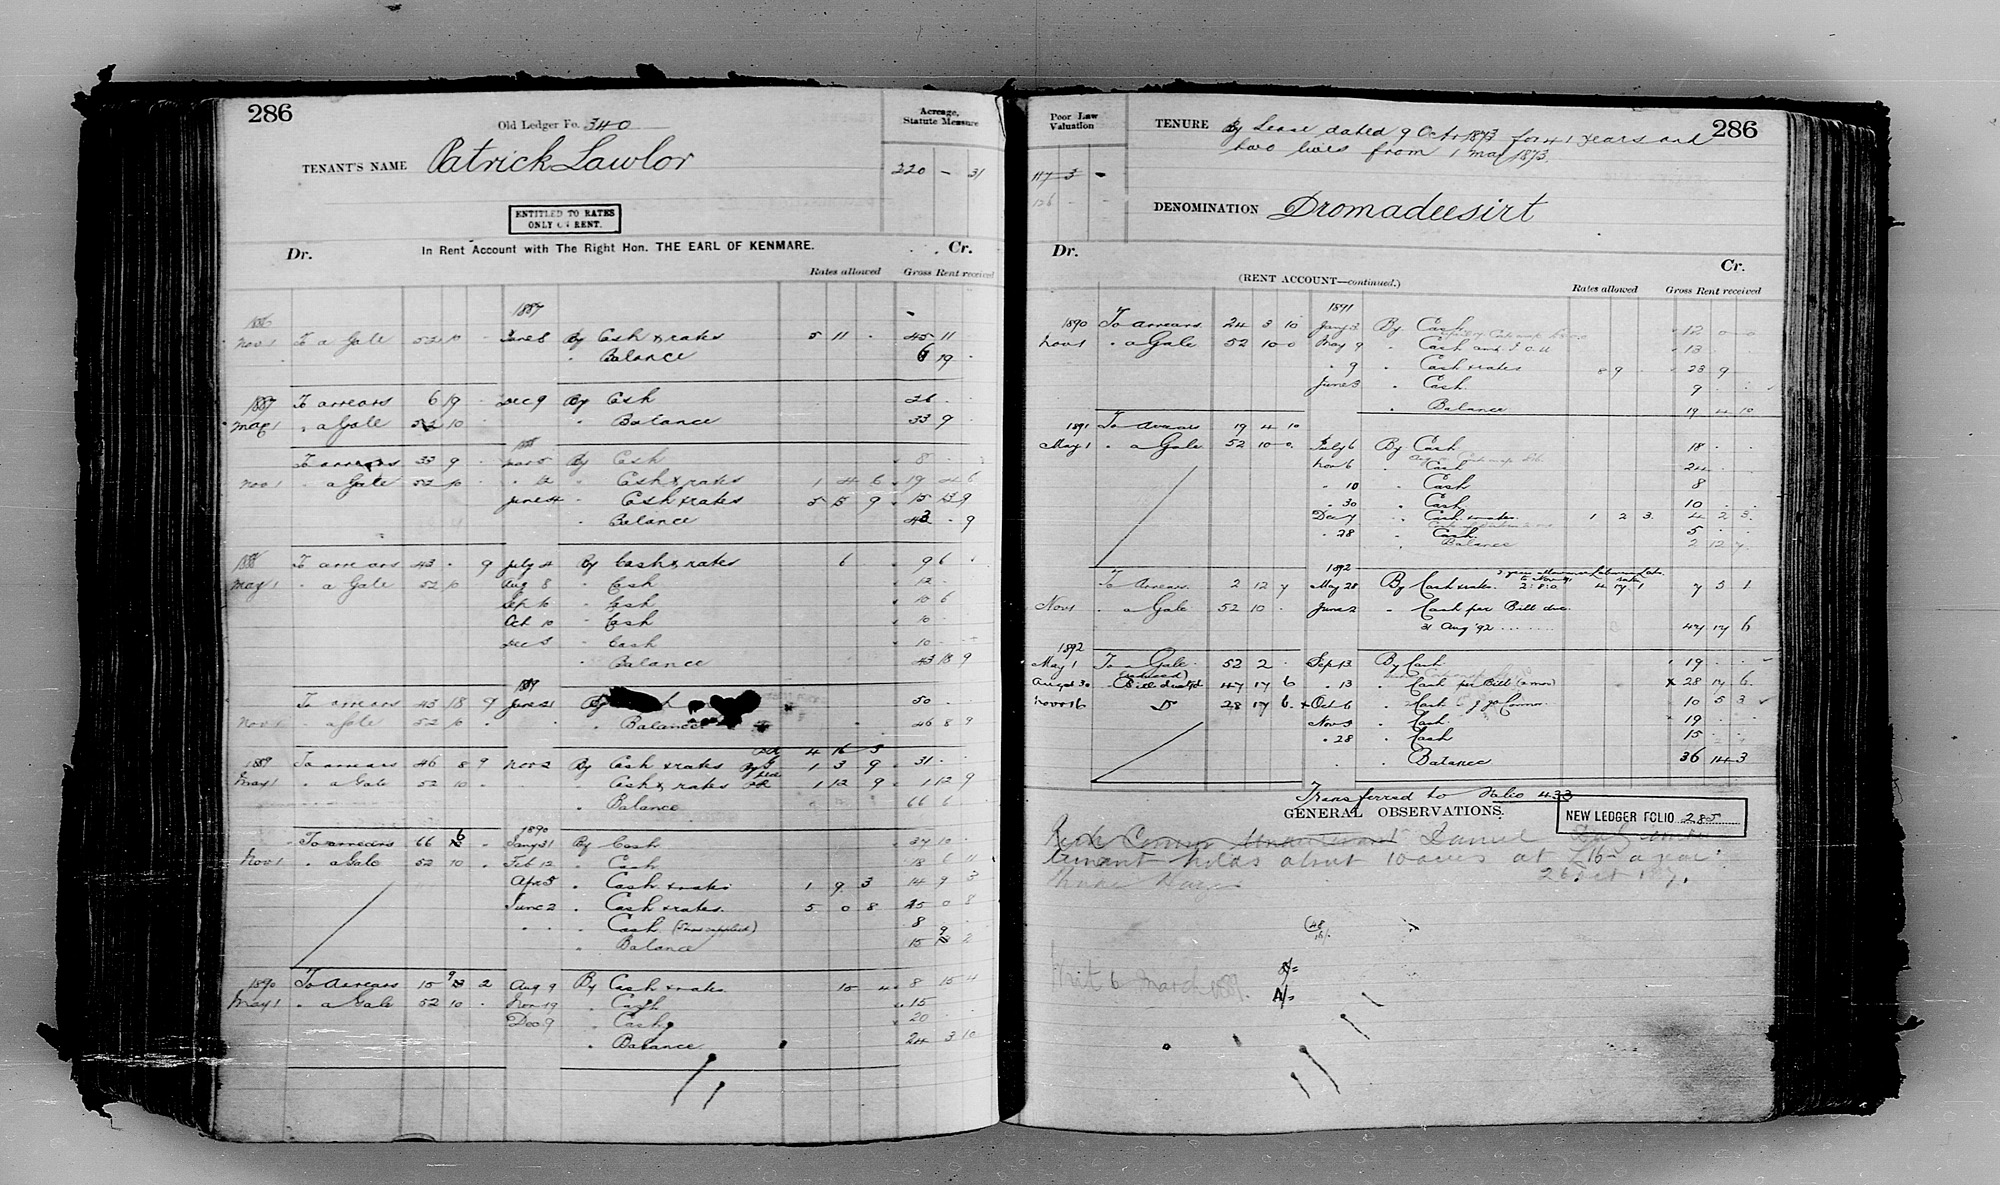 286
Old Ledger Fo. 340
TENANT'S NAME Patrick Lawlor
Acreage, Statute Measure
220 – 31
ENTITLED TO RATES
ONLY ON RENT.
Dr. In Rent Account with The Right Hon. THE EARL OF KENMARE. Cr.
Rates allowed Gross Rent received
1886 1887
Nov 1 To a Gale 52 10 · June 8 By Cash & rates 5 11 · 45 11
" Balance 6 19 ·
1887 To arrears 6 19 · Dec 9 By Cash 26 · ·
May 1 " a Gale 52 10 · " Balance 33 9 ·
1888
To arrears 33 9 · By Cash 8 · ·
Nov 1 " a Gale 52 10 · " 12 " Cash & rates 1 4 6 19 4 6
June 4 " Cash & rates 5 15 9 15 15 9
" Balance 43 · 9
1888 To arrears 43 · 9 July 4 By Cash & rates 6 · 9 6 ·
May 1 " a Gale 52 10 Aug 8 " Cash 12 · ·
Sep 10 " Cash 10 6
Oct 10 " Cash 10 ·
Dec 8 " Cash 10 · ·
" Balance 43 18 9
1889
To arrears 43 18 9 June 21 By 50 · ·
Nov 1 " a Gale 52 10 · " Balance 46 8 9
4 16 3
1889 To arrears 46 8 9 Nov 2 By Cash & rates 1 3 9 31 · ·
May 1 " a Gale 52 10 · " Cash & rates 1 12 9 1 12 9
" Balance 66 6 ·
1890
To arrears 66 6 · Jany 31 By Cash 37 10 ·
Nov 1 " a Gale 52 10 · Feb 12 " Cash 18 6 11
Apr 5 " Cash & rates 1 9 3 14 9 3
June 2 " Cash & rates 5 0 8 15 0 8
" " Cash 8 · ·
" Balance 15 9 2
1890 To Arrears 15 9 2 Aug 9 By Cash & rates 15 4 8 15 4
May 1 " a Gale 52 10 · Nov 19 " Cash 15 · ·
Dec 9 " Cash 20 · ·
" Balance 24 3 10
Poor Law Valuation
117 3 –
126 · ·
TENURE By Lease dated 9 Oct 1873 for 41 years and
two lives from 1 May 1873.
286
DENOMINATION Dromadeesirt
Dr. Cr.
(RENT ACCOUNT—continued.)
Rates allowed Gross Rent received
1891
1890 To arrears 24 3 10 Jany 3 By Cash 12 0 0
Nov 1 " a Gale 52 10 0 May 9 " Cash and I.O.U 13 · ·
" 9 " Cash & rates 8 9 · 28 9 ·
June 3 " Cash 9 · ·
" Balance 19 4 10
1891 To Arrears 19 4 10
May 1 " a Gale 52 10 0 July 6 By Cash 18 · ·
Nov 6 " Cash 24 · ·
" 10 " Cash 8
" 30 " Cash 10 · ·
Dec 7 " Cash & rates 1 2 3 4 2 3
" 28 " Cash 5 · ·
" Balance 2 12 7
1892
To Arrears 2 12 7 May 28 By Cash & rates 2 : 8 : 0 4 17 1 7 5 1
Nov 1 " a Gale 52 10 · June 2 " Cash per Bill due
31 Aug '92 47 17 6
1892
May 1 To a Gale 52 2 · Sep 13 By Cash 19 · ·
(reduced)
Augt 30 " Bill 47 17 6 " 13 " Cash per Bill 28 17 6
Nov 16 " Do 28 17 6 Oct 6 " Cash J J O'Connor 10 5 3
Nov 3 " Cash 19 · ·
" 28 " Cash 15 · ·
" Balance 36 14 3
Transferred to Folio 433
GENERAL OBSERVATIONS.
NEW LEDGER FOLIO 285
Connor Daniel
tenant holds about 10 acres at £16 – a year
26 Oct
6 March